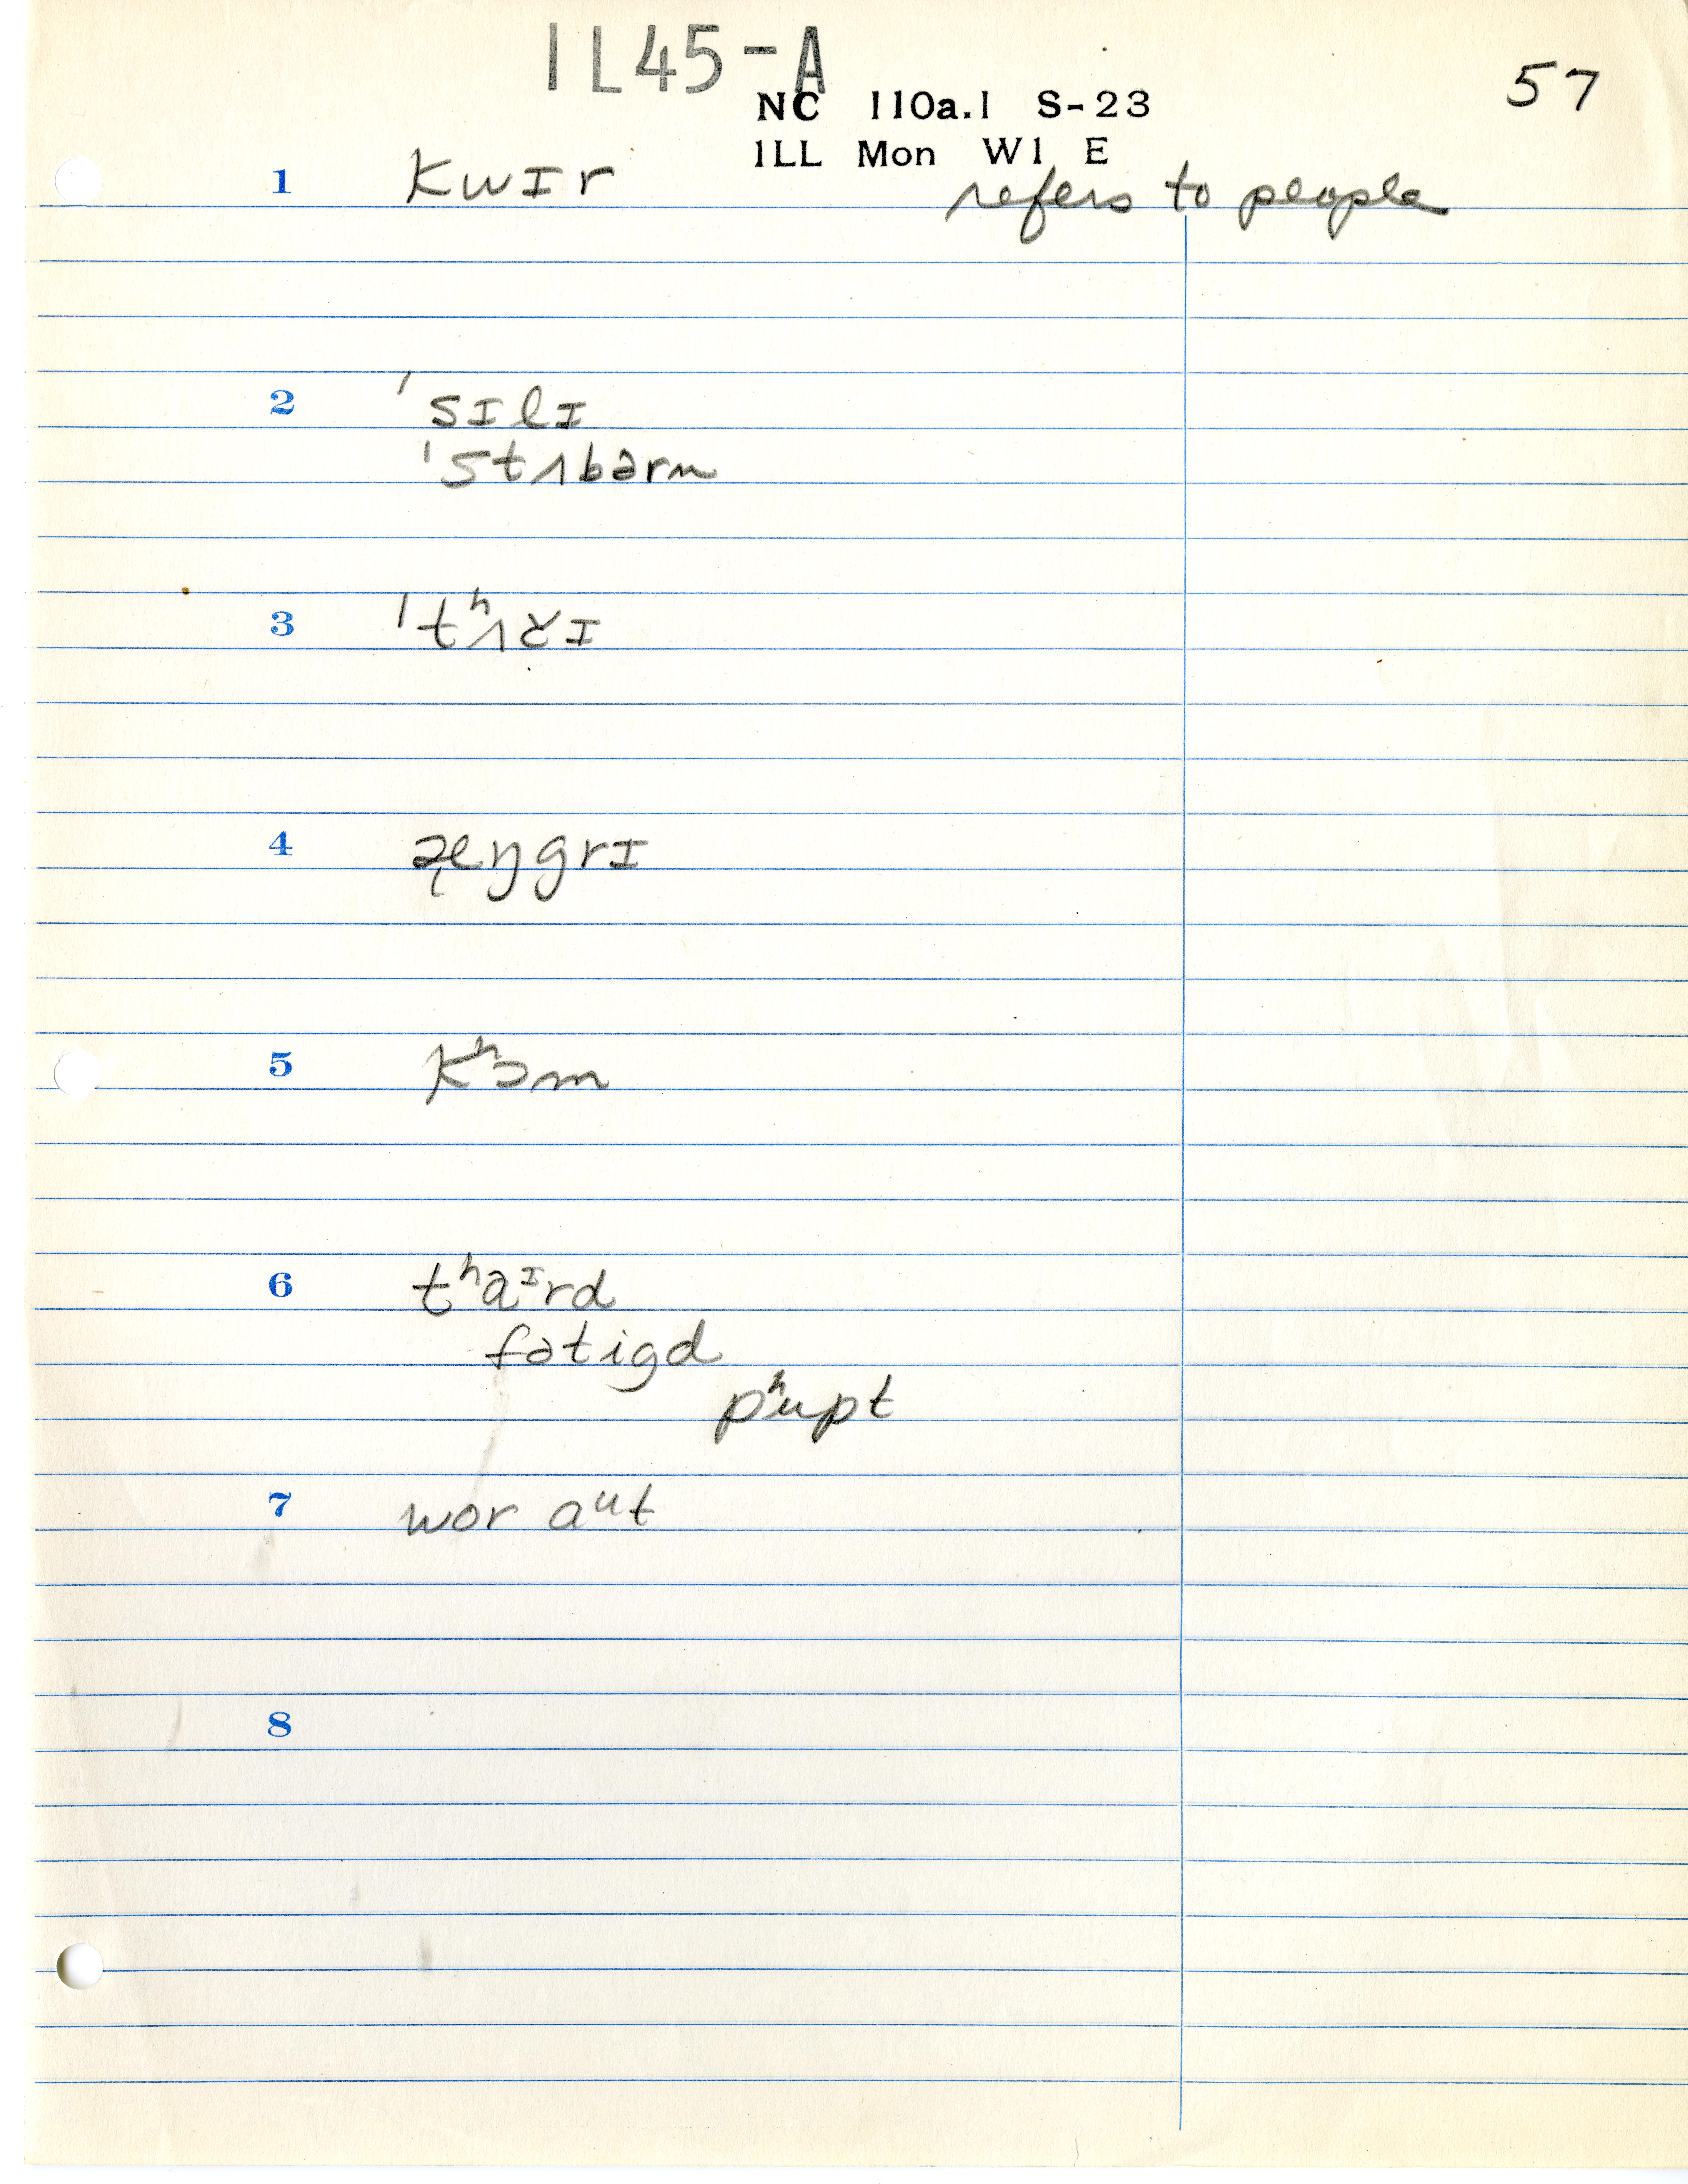 IL45-A
57
NC 110a.1 S-23
ILL Mon W1 E
1 kwɪr refers to people
2 'sɪlɪ
'stʌbərn
3 'tʰʌčɪ
4 æ̨ŋgrɪ
5 kʰɔm
6 tʰaᶦrd
fətigd
pʰupt
7 wor aᵘt
8